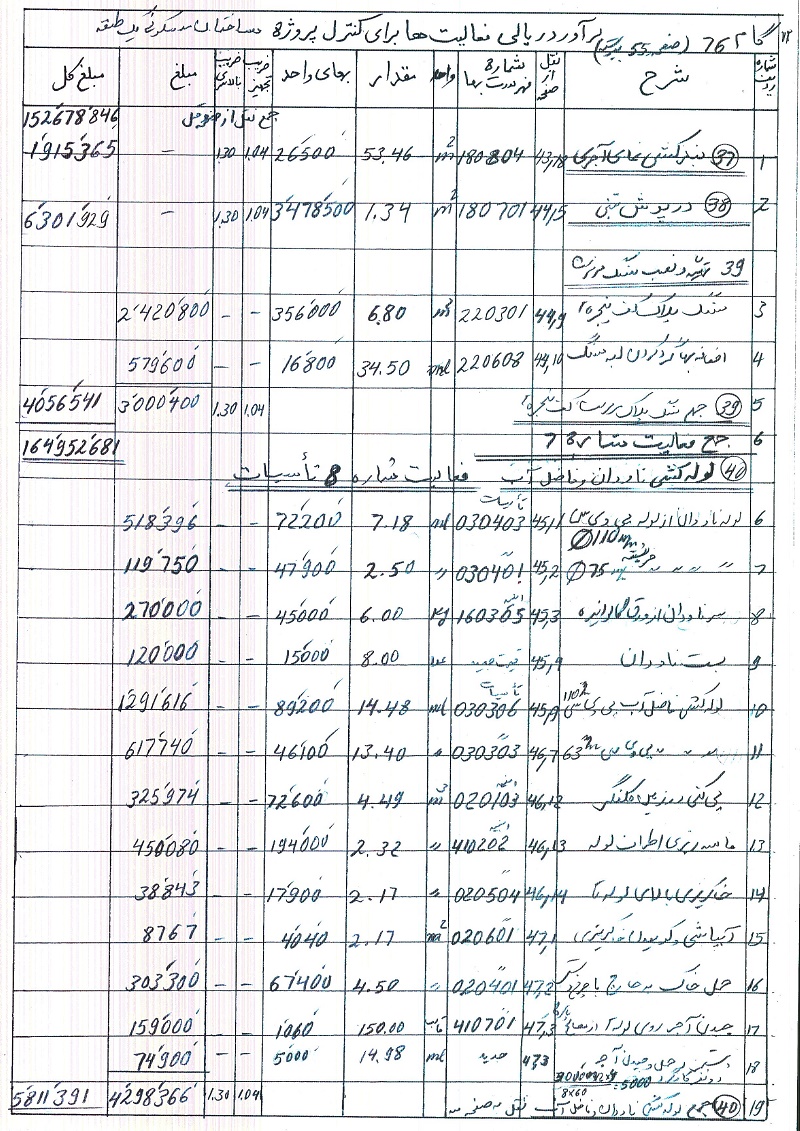 گام 76 (صفحه 55) برآورد ریالی فعالیت ها برای کنترل پروژه ساختمان مسکونی یک طبقه
شماره ردیف شرح نقل از صفحه شماره فهرست بها واحد مقدار بهای واحد ضریب تجهیز ضریب بالاسری مبلغ مبلغ کل
جمع نقل از صفحه قبل 152'678'846
1 (37) بندکشی نمای آجری 43,18 180804 m² 53.46 26'500 1.04 1.30 – 1'915'365
2 (38) درپوش بتنی 44,5 180701 m² 1.34 3'478'500 1.04 1.30 – 6'301'929
39 تهیه و نصب سنگ
3 سنگ پلاک کف پنجره 44,9 220301 m² 6.80 356'000 – – 2'420'800
4 اضافه بها گرد کردن لبه سنگ 44,10 220608 ml 34.50 16'800 – – 579'600
5 (39) جمع سنگ پلاک کف پنجره 1.04 1.30 3'000'400 4'056'541
6 جمع فعالیت شماره 7 164'952'681
(40) لوله کشی ناودان و فاضل آب فعالیت شماره 8 تأسیسات
6 لوله ناودان از لوله پی وی سی Ø110 mm 45,1 تأسیسات 030403 ml 7.18 72'200 – – 518'396
7 " " " " Ø75 45,2 030401 " 2.50 47'900 – – 119'750
8 سر ناودان از ورق گالوانیزه 45,3 160305 Kg 6.00 45'000 – – 270'000
9 بست ناودان 45,4 قیمت جدید عدد 8.00 15'000 – – 120'000
10 لوله کشی فاضل آب پی وی سی 110 45,9 تأسیسات 030306 ml 14.48 89'200 – – 1'291'616
11 " " " پی وی سی 63 46,7 030303 " 13.40 46'100 – – 617'740
12 پی کنی در زمین کلنگی 46,12 020103 m³ 4.49 72'600 – – 325'974
13 ماسه ریزی اطراف لوله 46,13 410202 " 2.32 194'000 – – 450'080
14 خاکریزی بالای لوله ها 46,14 020504 " 2.17 17'900 – – 38'843
15 آبپاشی و کوبیدن خاکریزی 47,1 020601 m² 2.17 4'040 – – 8'767
16 حمل خاک به خارج با 47,2 020401 " 4.50 67'400 – – 303'300
17 چیدن آجر روی لوله 47,3 410701 قالب 150.00 1'060 – – 159'000
18 حمل و چیدن آجر 5000 473 جدید ml 14.98 5'000 74'900
19 (40) جمع لوله کشی ناودان و فاضل آب نقل به صفحه 1.04 1.30 4'298'366 5'811'391